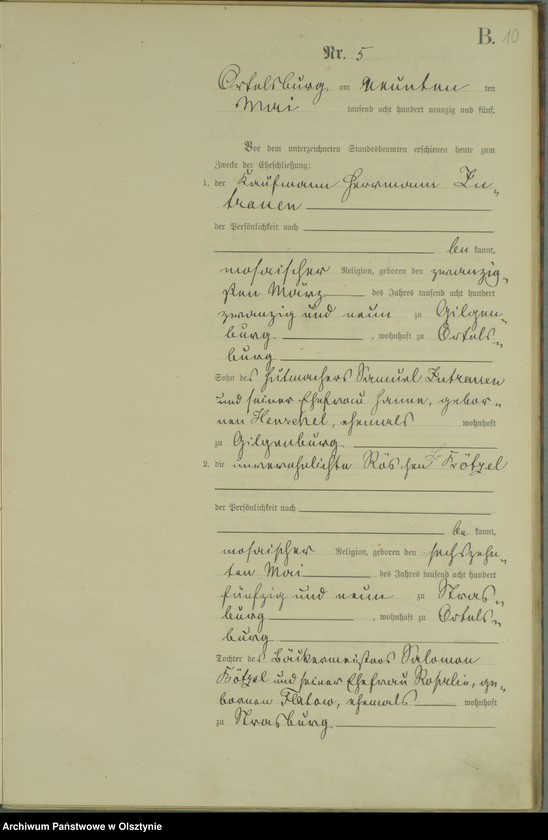 B. 10
Nr. 5
Ortelsburg, am neunten ten
Mai tausend acht hundert neunzig und fünf.
Vor dem unterzeichneten Standesbeamten erschienen heute zum
Zwecke der Eheschließung:
1. der Kaufmann Herrmann In-
trauen
der Persönlichkeit nach
be kannt,
mosaischer Religion, geboren den zwanzig-
sten März des Jahres tausend acht hundert
zwanzig und neun zu Gilgen-
burg, wohnhaft zu Ortels-
burg
Sohn des Hutmachers Samuel Intrauen
und seiner Ehefrau Hanne, gebor-
nen Herschel, ehemals wohnhaft
zu Gilgenburg
2. die unverehelichte Röschen Frötzel
der Persönlichkeit nach
be kannt,
mosaischer Religion, geboren den sechszehn-
ten Mai des Jahres tausend acht hundert
fünfzig und neun zu Stras-
burg, wohnhaft zu Ortels-
burg
Tochter des Bäckermeisters Salomon
Frötzel und seiner Ehefrau Rosalie, ge-
bornen Flatow, ehemals wohnhaft
zu Strasburg
Archiwum Państwowe w Olsztynie